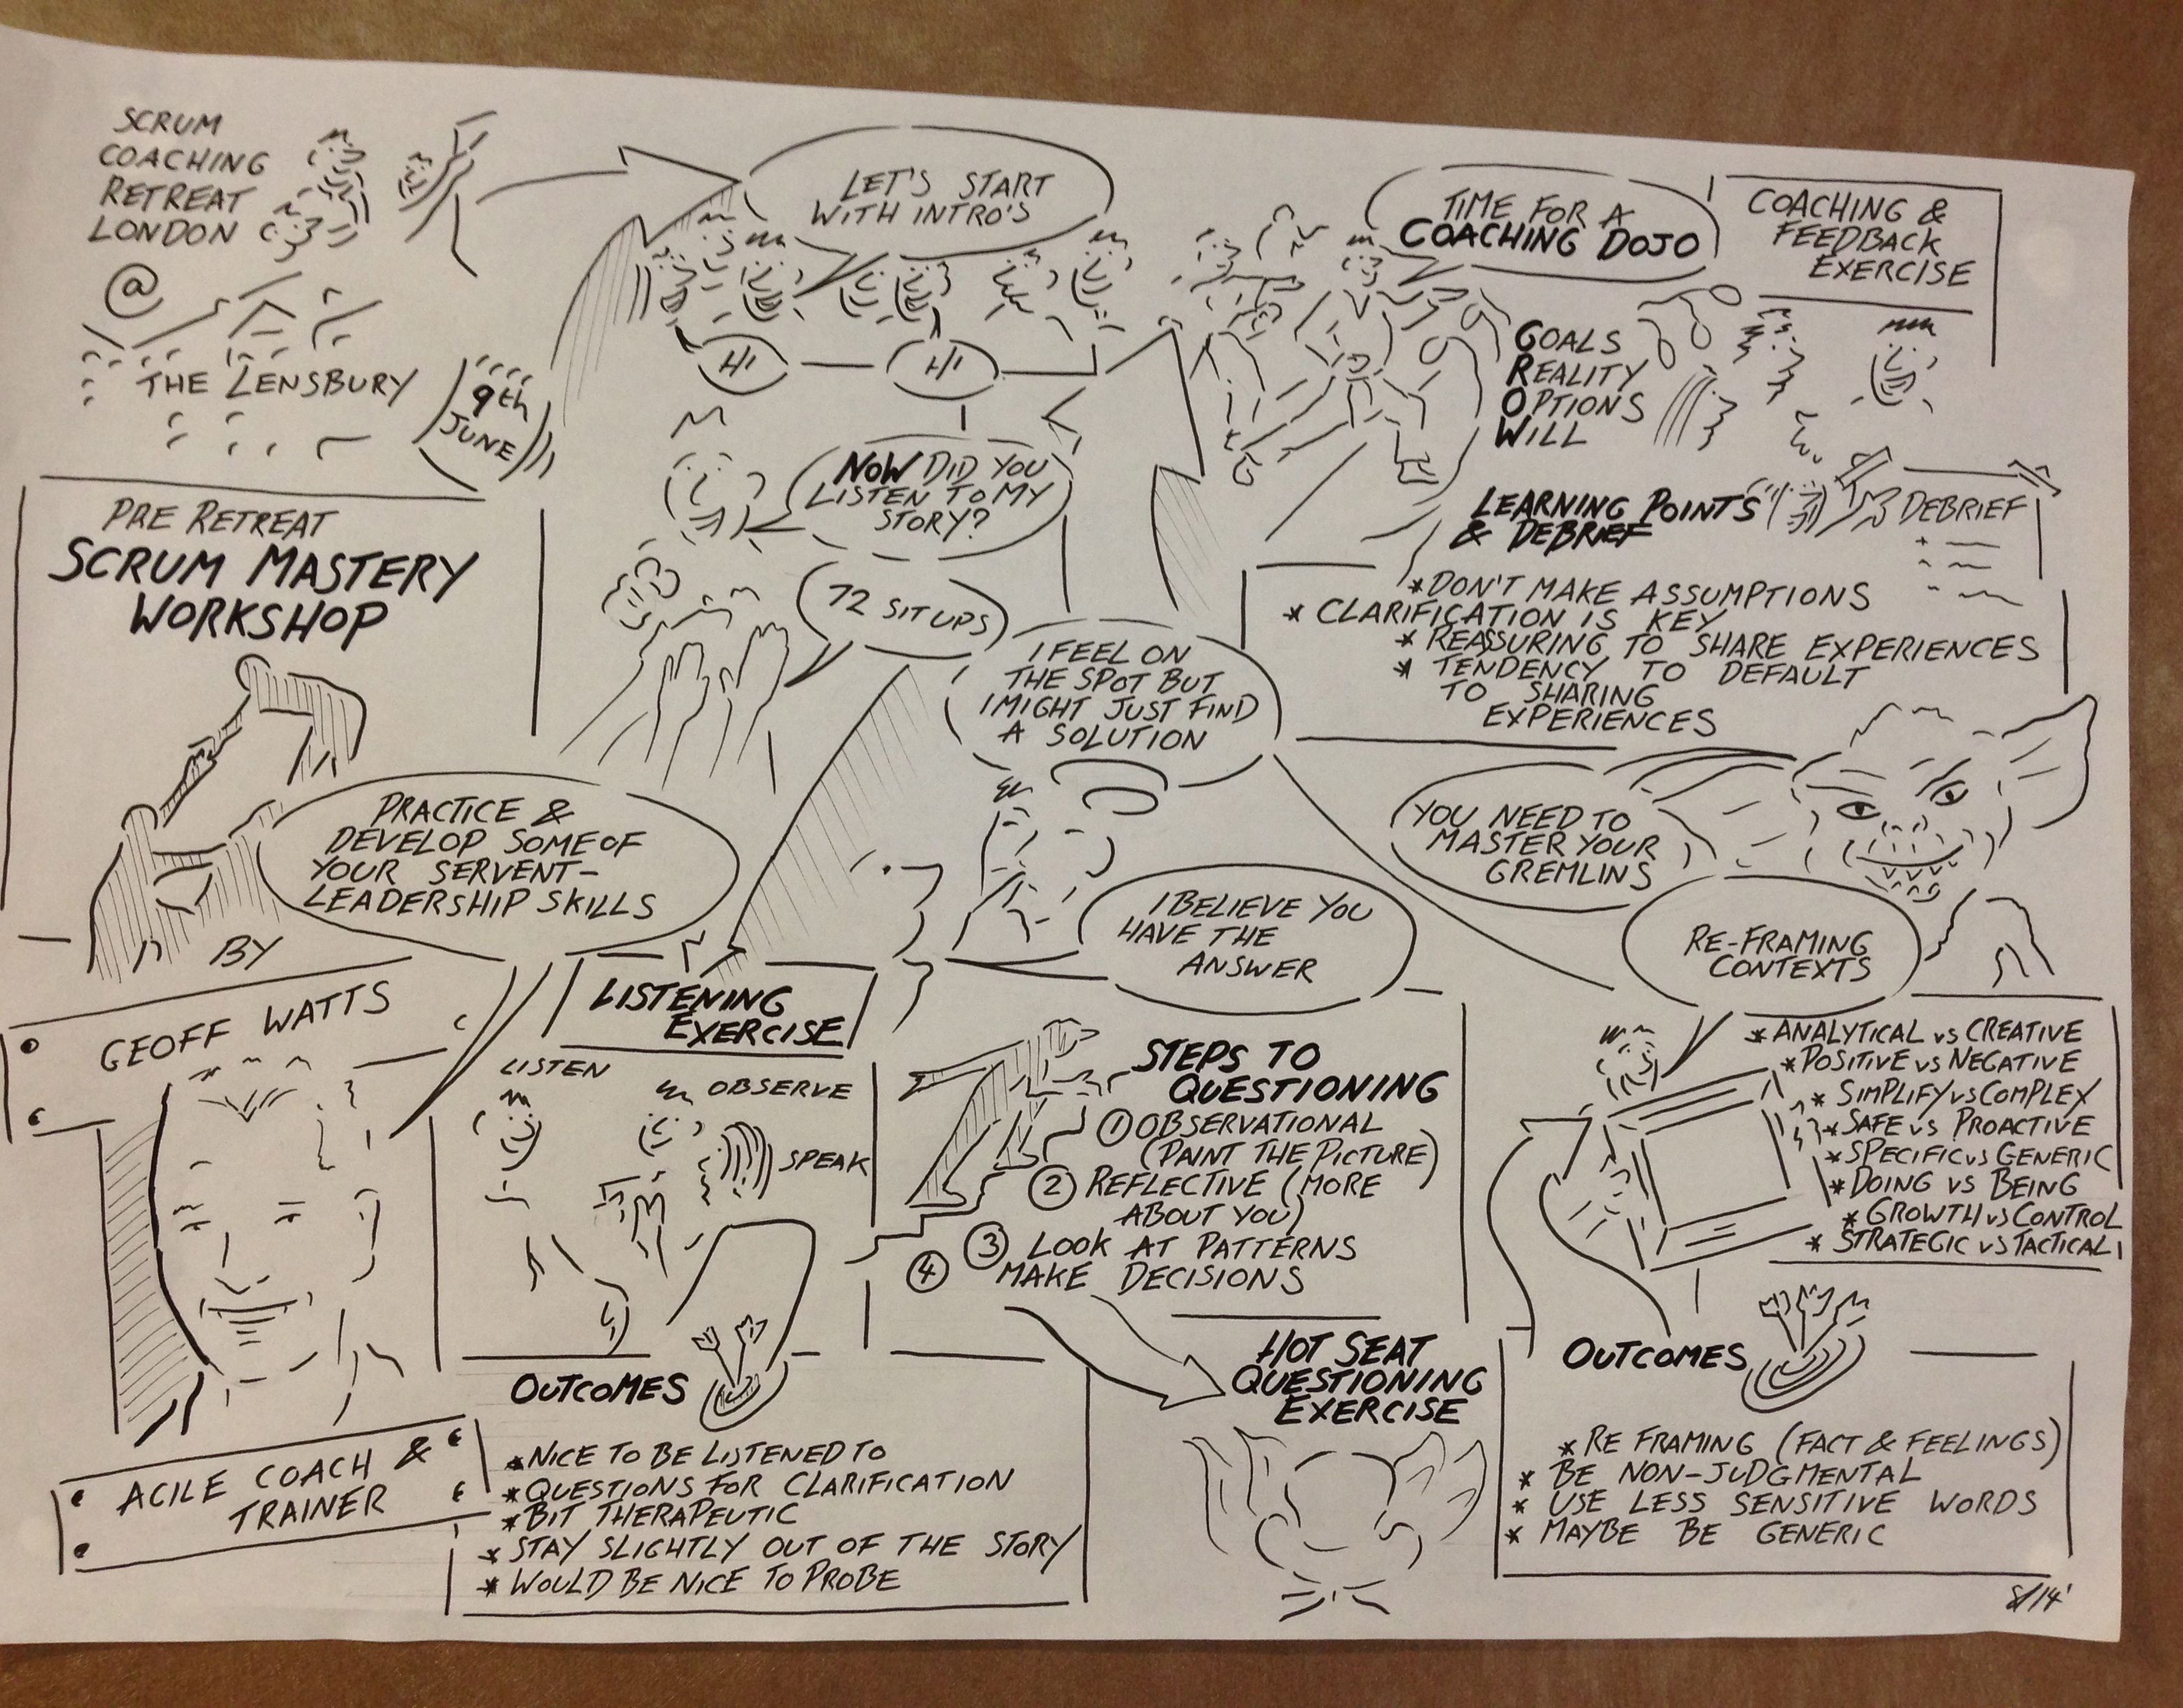 SCRUM
COACHING
RETREAT
LONDON
@
THE LENSBURY
9th
JUNE
PRE RETREAT
SCRUM MASTERY
WORKSHOP
PRACTICE &
DEVELOP SOME OF
YOUR SERVENT-
LEADERSHIP SKILLS
BY
GEOFF WATTS
AGILE COACH &
TRAINER
LET'S START
WITH INTRO'S
HI
HI
NOW DID YOU
LISTEN TO MY
STORY?
72 SIT UPS
LISTENING
EXERCISE
LISTEN
OBSERVE
SPEAK
OUTCOMES
*NICE TO BE LISTENED TO
*QUESTIONS FOR CLARIFICATION
*BIT THERAPEUTIC
*STAY SLIGHTLY OUT OF THE STORY
*WOULD BE NICE TO PROBE
I FEEL ON
THE SPOT BUT
I MIGHT JUST FIND
A SOLUTION
I BELIEVE YOU
HAVE THE
ANSWER
STEPS TO
QUESTIONING
1 OBSERVATIONAL
(PAINT THE PICTURE)
2 REFLECTIVE (MORE
ABOUT YOU)
3 LOOK AT PATTERNS
4 MAKE DECISIONS
HOT SEAT
QUESTIONING
EXERCISE
TIME FOR A
COACHING DOJO
COACHING &
FEEDBACK
EXERCISE
GOALS
REALITY
OPTIONS
WILL
LEARNING POINTS
& DEBRIEF
DEBRIEF
*DON'T MAKE ASSUMPTIONS
* CLARIFICATION IS KEY
* REASSURING TO SHARE EXPERIENCES
* TENDENCY TO DEFAULT
TO SHARING
EXPERIENCES
YOU NEED TO
MASTER YOUR
GREMLINS
RE-FRAMING
CONTEXTS
*ANALYTICAL vs CREATIVE
*POSITIVE vs NEGATIVE
* SIMPLIFY vs COMPLEX
*SAFE vs PROACTIVE
*SPECIFIC vs GENERIC
*DOING vs BEING
*GROWTH vs CONTROL
* STRATEGIC vs TACTICAL
OUTCOMES
*RE FRAMING (FACT & FEELINGS)
* BE NON-JUDGMENTAL
* USE LESS SENSITIVE WORDS
* MAYBE BE GENERIC